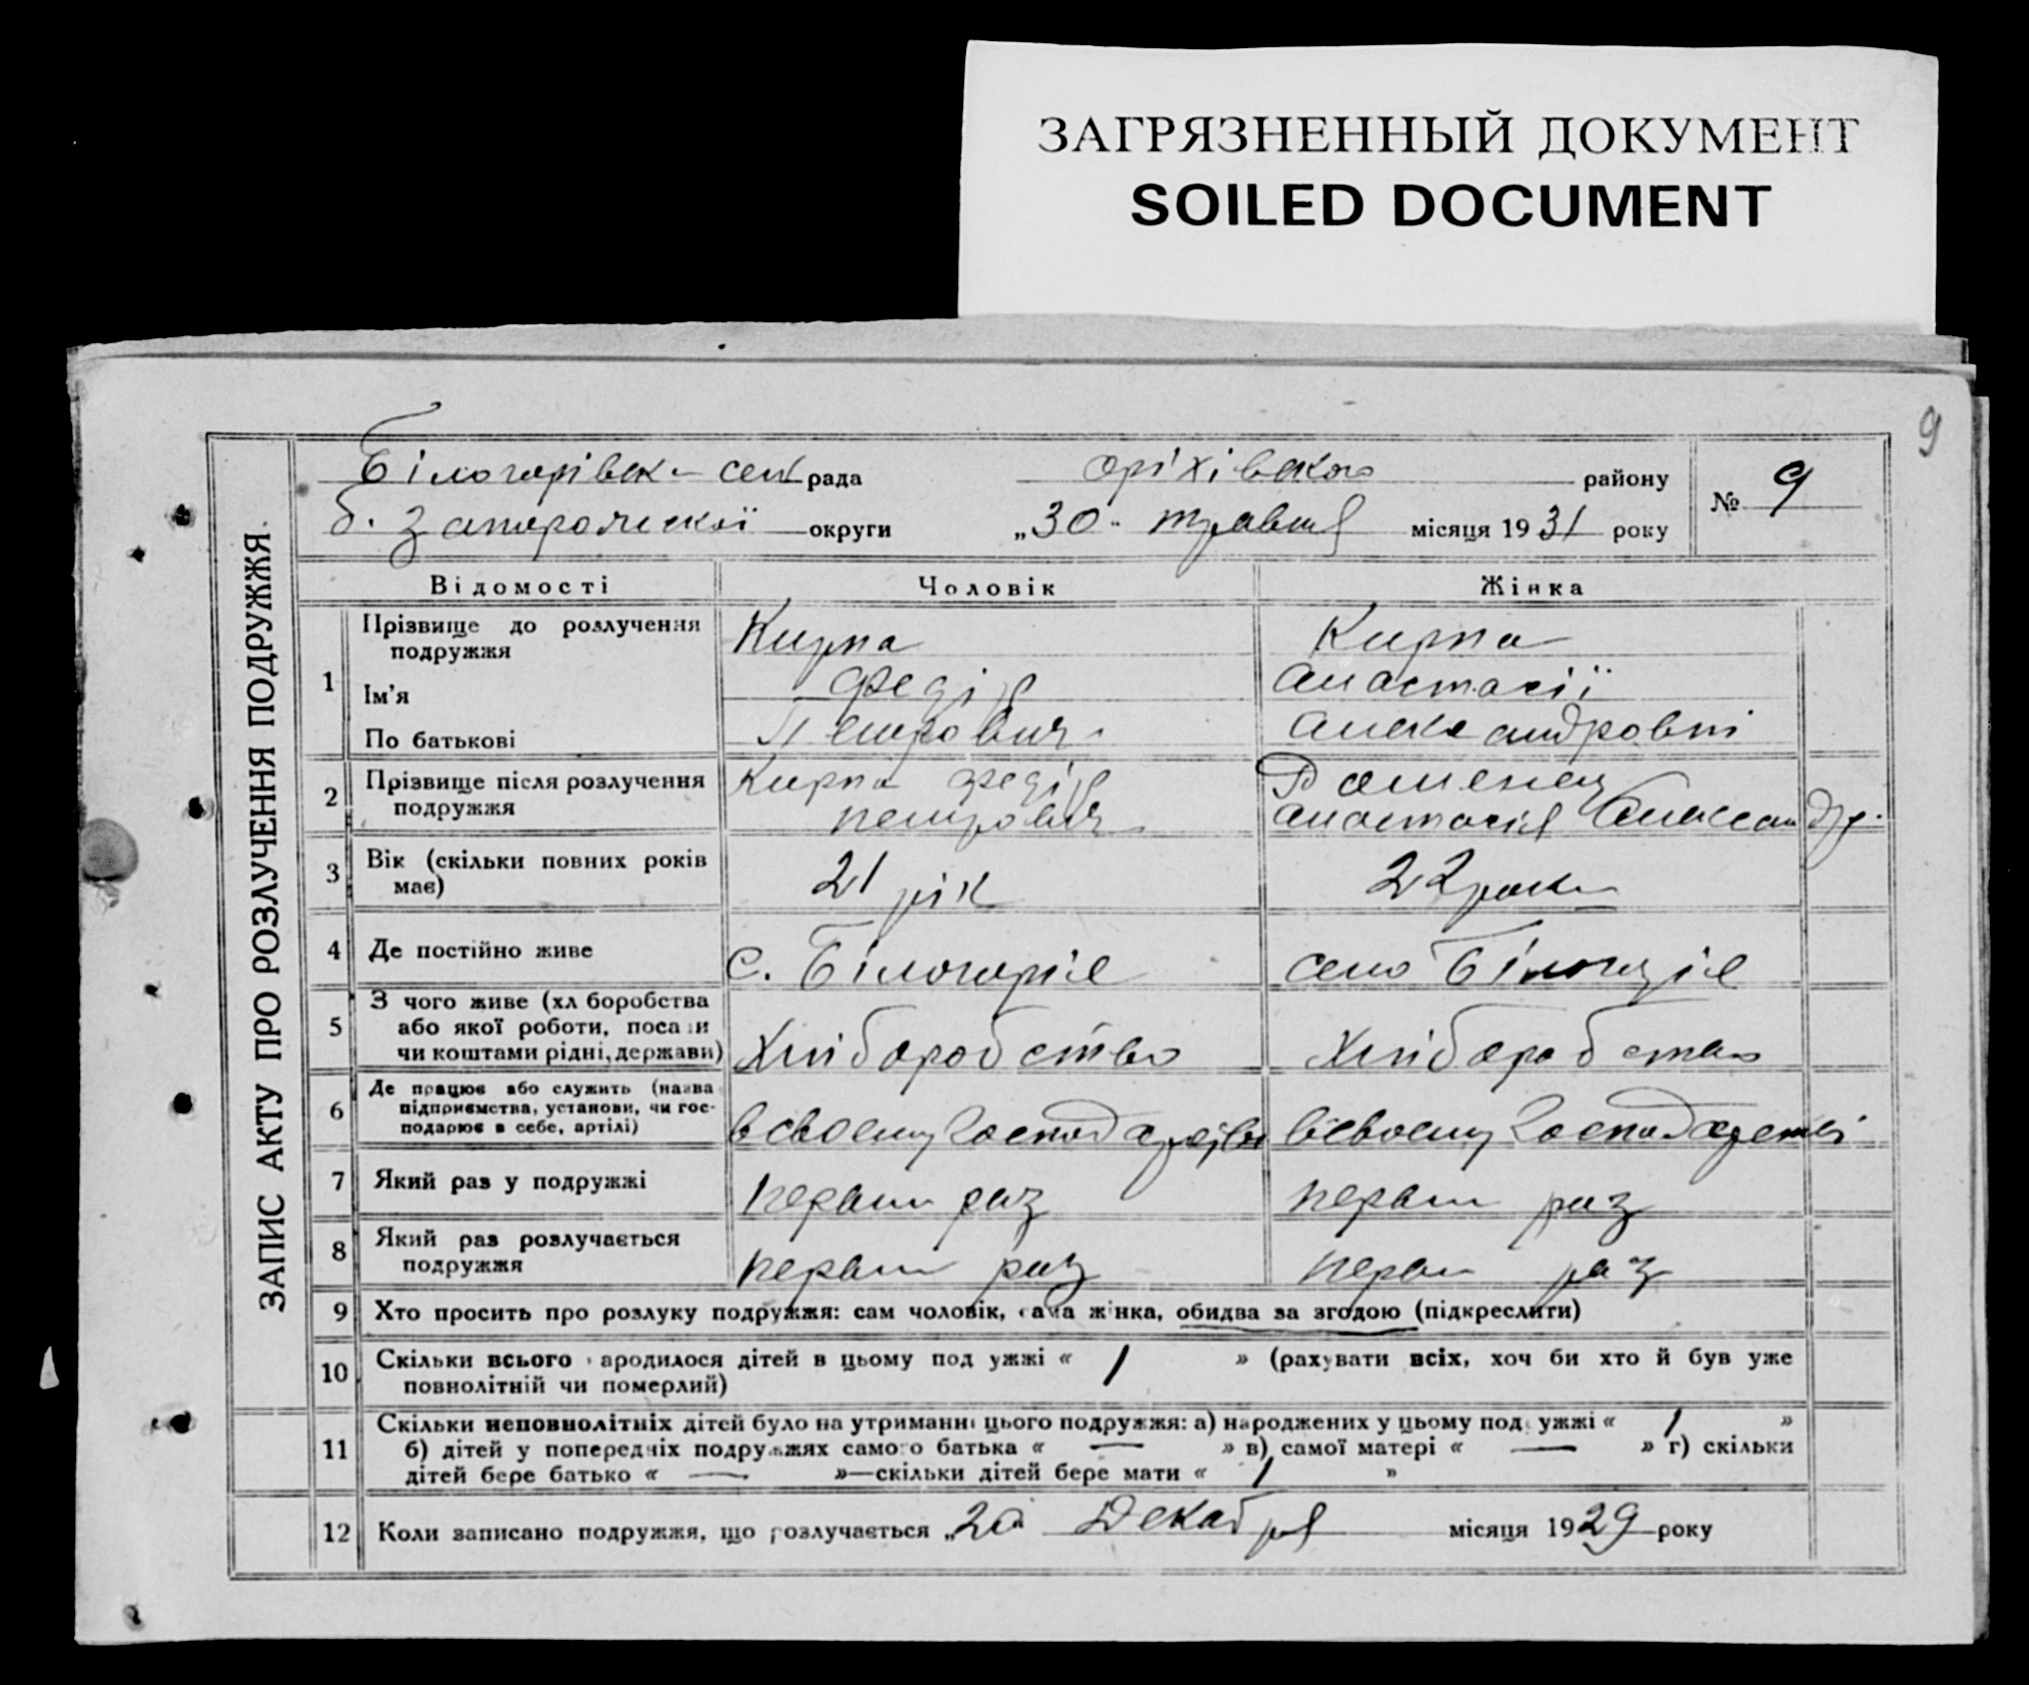 ЗАГРЯЗНЕННЫЙ ДОКУМЕНТ
SOILED DOCUMENT
9
ЗАПИС АКТУ ПРО РОЗЛУЧЕННЯ ПОДРУЖЖЯ.
Білогорівск сель рада оріхівського району № 9
б. Запорожскої округи „30" травня місяця 1931 року
Відомості Чоловік Жінка
1 Прізвище до розлучення подружжя Кирпа Кирпа
Ім'я Федір Анастасії
По батькові Петрович Александровні
2 Прізвище після розлучення Кирпа Федір
подружжя Петрович Анастасія Александр.
3 Вік (скільки повних років має) 21 рік 22 роки
4 Де постійно живе с. Білогоріє село Білогоріє
5 З чого живе (хл боробства
або якої роботи, поса и
чи коштами рідні, держави) Хліборобство Хліборобство
6 Де працює або служить (назва
підприємства, установи, чи гос-
подарює в себе, артілі) в своєму господарстві в своєму господарстві
7 Який раз у подружжі перший раз перший раз
8 Який раз розлучається
подружжя перший раз перший раз
9 Хто просить про розлуку подружжя: сам чоловік, сама жінка, обидва за згодою (підкреслити)
10 Скільки всього народилося дітей в цьому под ужжі « 1 » (рахувати всіх, хоч би хто й був уже
повнолітній чи померлий)
11 Скільки неповнолітніх дітей було на утриманні цього подружжя: а) народжених у цьому под ужжі « 1 »
б) дітей у попередніх подружжях самого батька « — » в) самої матері « — » г) скільки
дітей бере батько « — »—скільки дітей бере мати « 1 »
12 Коли записано подружжя, що розлучається „20" Декабря місяця 1929 року